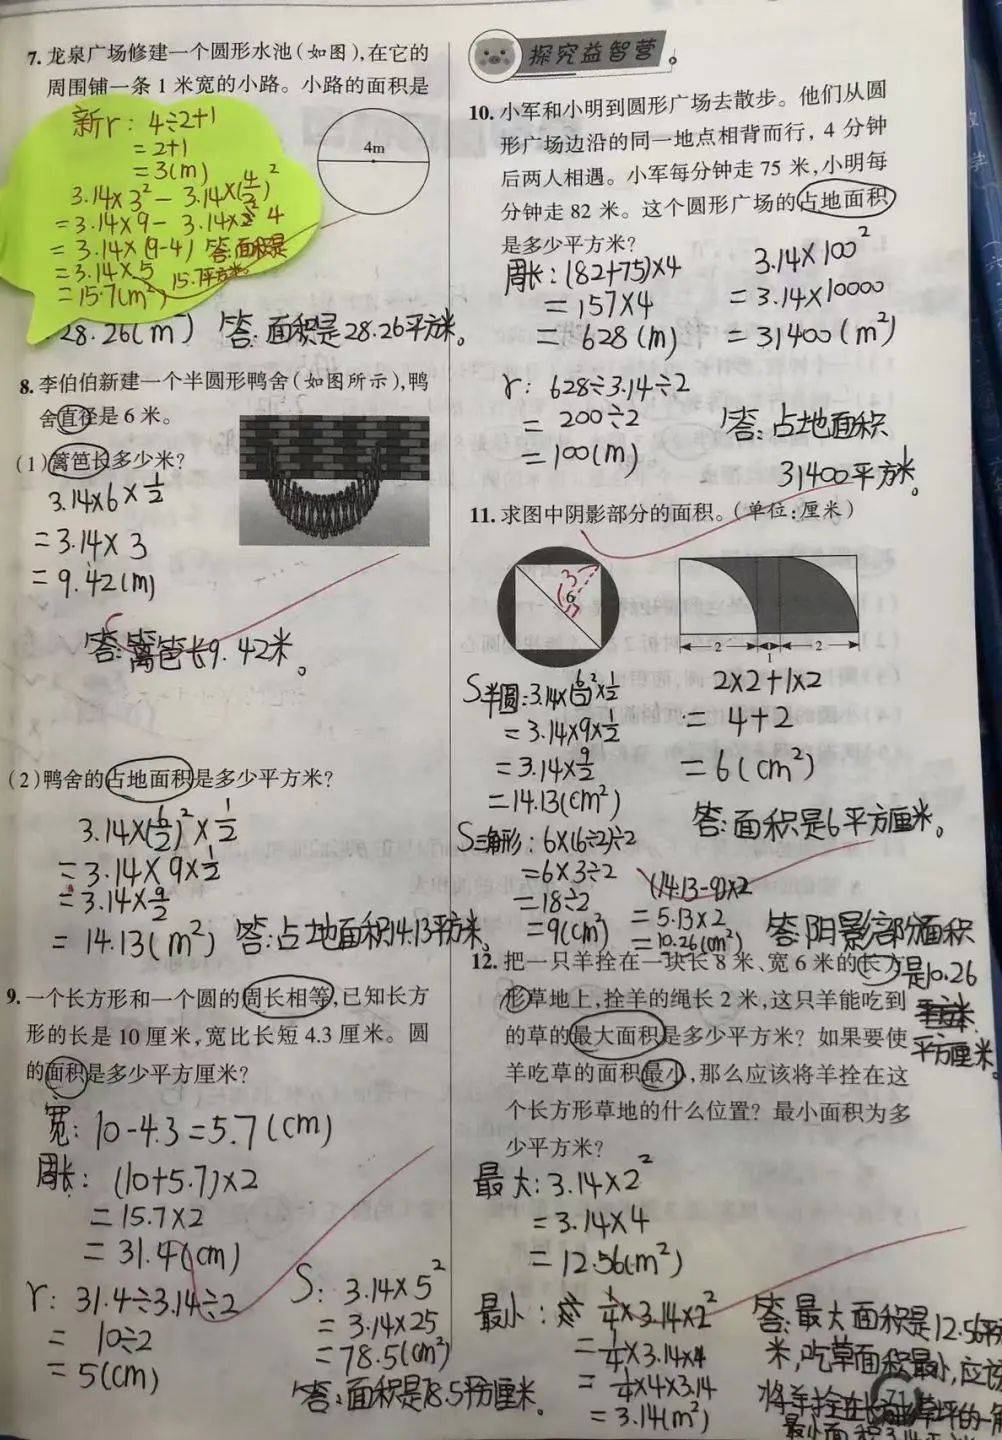 7. 龙泉广场修建一个圆形水池(如图),在它的
周围铺一条1米宽的小路。小路的面积是
新r: 4÷2+1
=2+1
=3(m)
3.14×3²-3.14×(4/2)²
=3.14×9-3.14× 4
=3.14×(9-4)
=3.14×5
=15.7(m²)
答:面积是
15.7平方米。
4m
28.26(m²) 答:面积是28.26平方米。
8. 李伯伯新建一个半圆形鸭舍(如图所示),鸭
舍直径是6米。
(1)篱笆长多少米?
3.14×6×1/2
=3.14×3
=9.42(m)
答:篱笆长9.42米。
(2)鸭舍的占地面积是多少平方米?
3.14×(6/2)²×1/2
=3.14×9×1/2
=3.14×9/2
=14.13(m²) 答:占地面积14.13平方米。
9. 一个长方形和一个圆的周长相等,已知长方
形的长是10厘米,宽比长短4.3厘米。圆
的面积是多少平方厘米?
宽: 10-4.3=5.7(cm)
周长: (10+5.7)×2
=15.7×2
=31.4(cm)
r: 31.4÷3.14÷2
=10÷2
=5(cm)
S: 3.14×5²
=3.14×25
=78.5(cm²)
答:面积是78.5平方厘米。
探究益智营
10. 小军和小明到圆形广场去散步。他们从圆
形广场边沿的同一地点相背而行,4分钟
后两人相遇。小军每分钟走75米,小明每
分钟走82米。这个圆形广场的占地面积
是多少平方米?
周长: (82+75)×4
=157×4
=628(m)
r: 628÷3.14÷2
=200÷2
=100(m)
3.14×100²
=3.14×10000
=31400(m²)
答:占地面积
31400平方米。
11. 求图中阴影部分的面积。(单位:厘米)
3
6
2 1 2
S半圆: 3.14×(6/2)²×1/2
=3.14×9×1/2
=3.14×9/2
=14.13(cm²)
S三角形: 6×(6÷2)÷2
=6×3÷2
=18÷2
=9(cm²)
(14.13-9)×2
=5.13×2
=10.26(cm²)
2×2+1×2
=4+2
=6(cm²)
答:面积是6平方厘米。
答:阴影部分面积
是10.26
平方厘米。
12. 把一只羊拴在一块长8米、宽6米的长方
形草地上,拴羊的绳长2米,这只羊能吃到
的草的最大面积是多少平方米?如果要使
羊吃草的面积最小,那么应该将羊拴在这
个长方形草地的什么位置?最小面积为多
少平方米?
最大: 3.14×2²
=3.14×4
=12.56(m²)
最小: 1/4×3.14×2²
=1/4×3.14×4
=1/4×4×3.14
=3.14(m²)
答:最大面积是12.56平
米,吃草面积最小,应该
将羊拴在长方形草坪的一角
最小面积3.14平方米
71